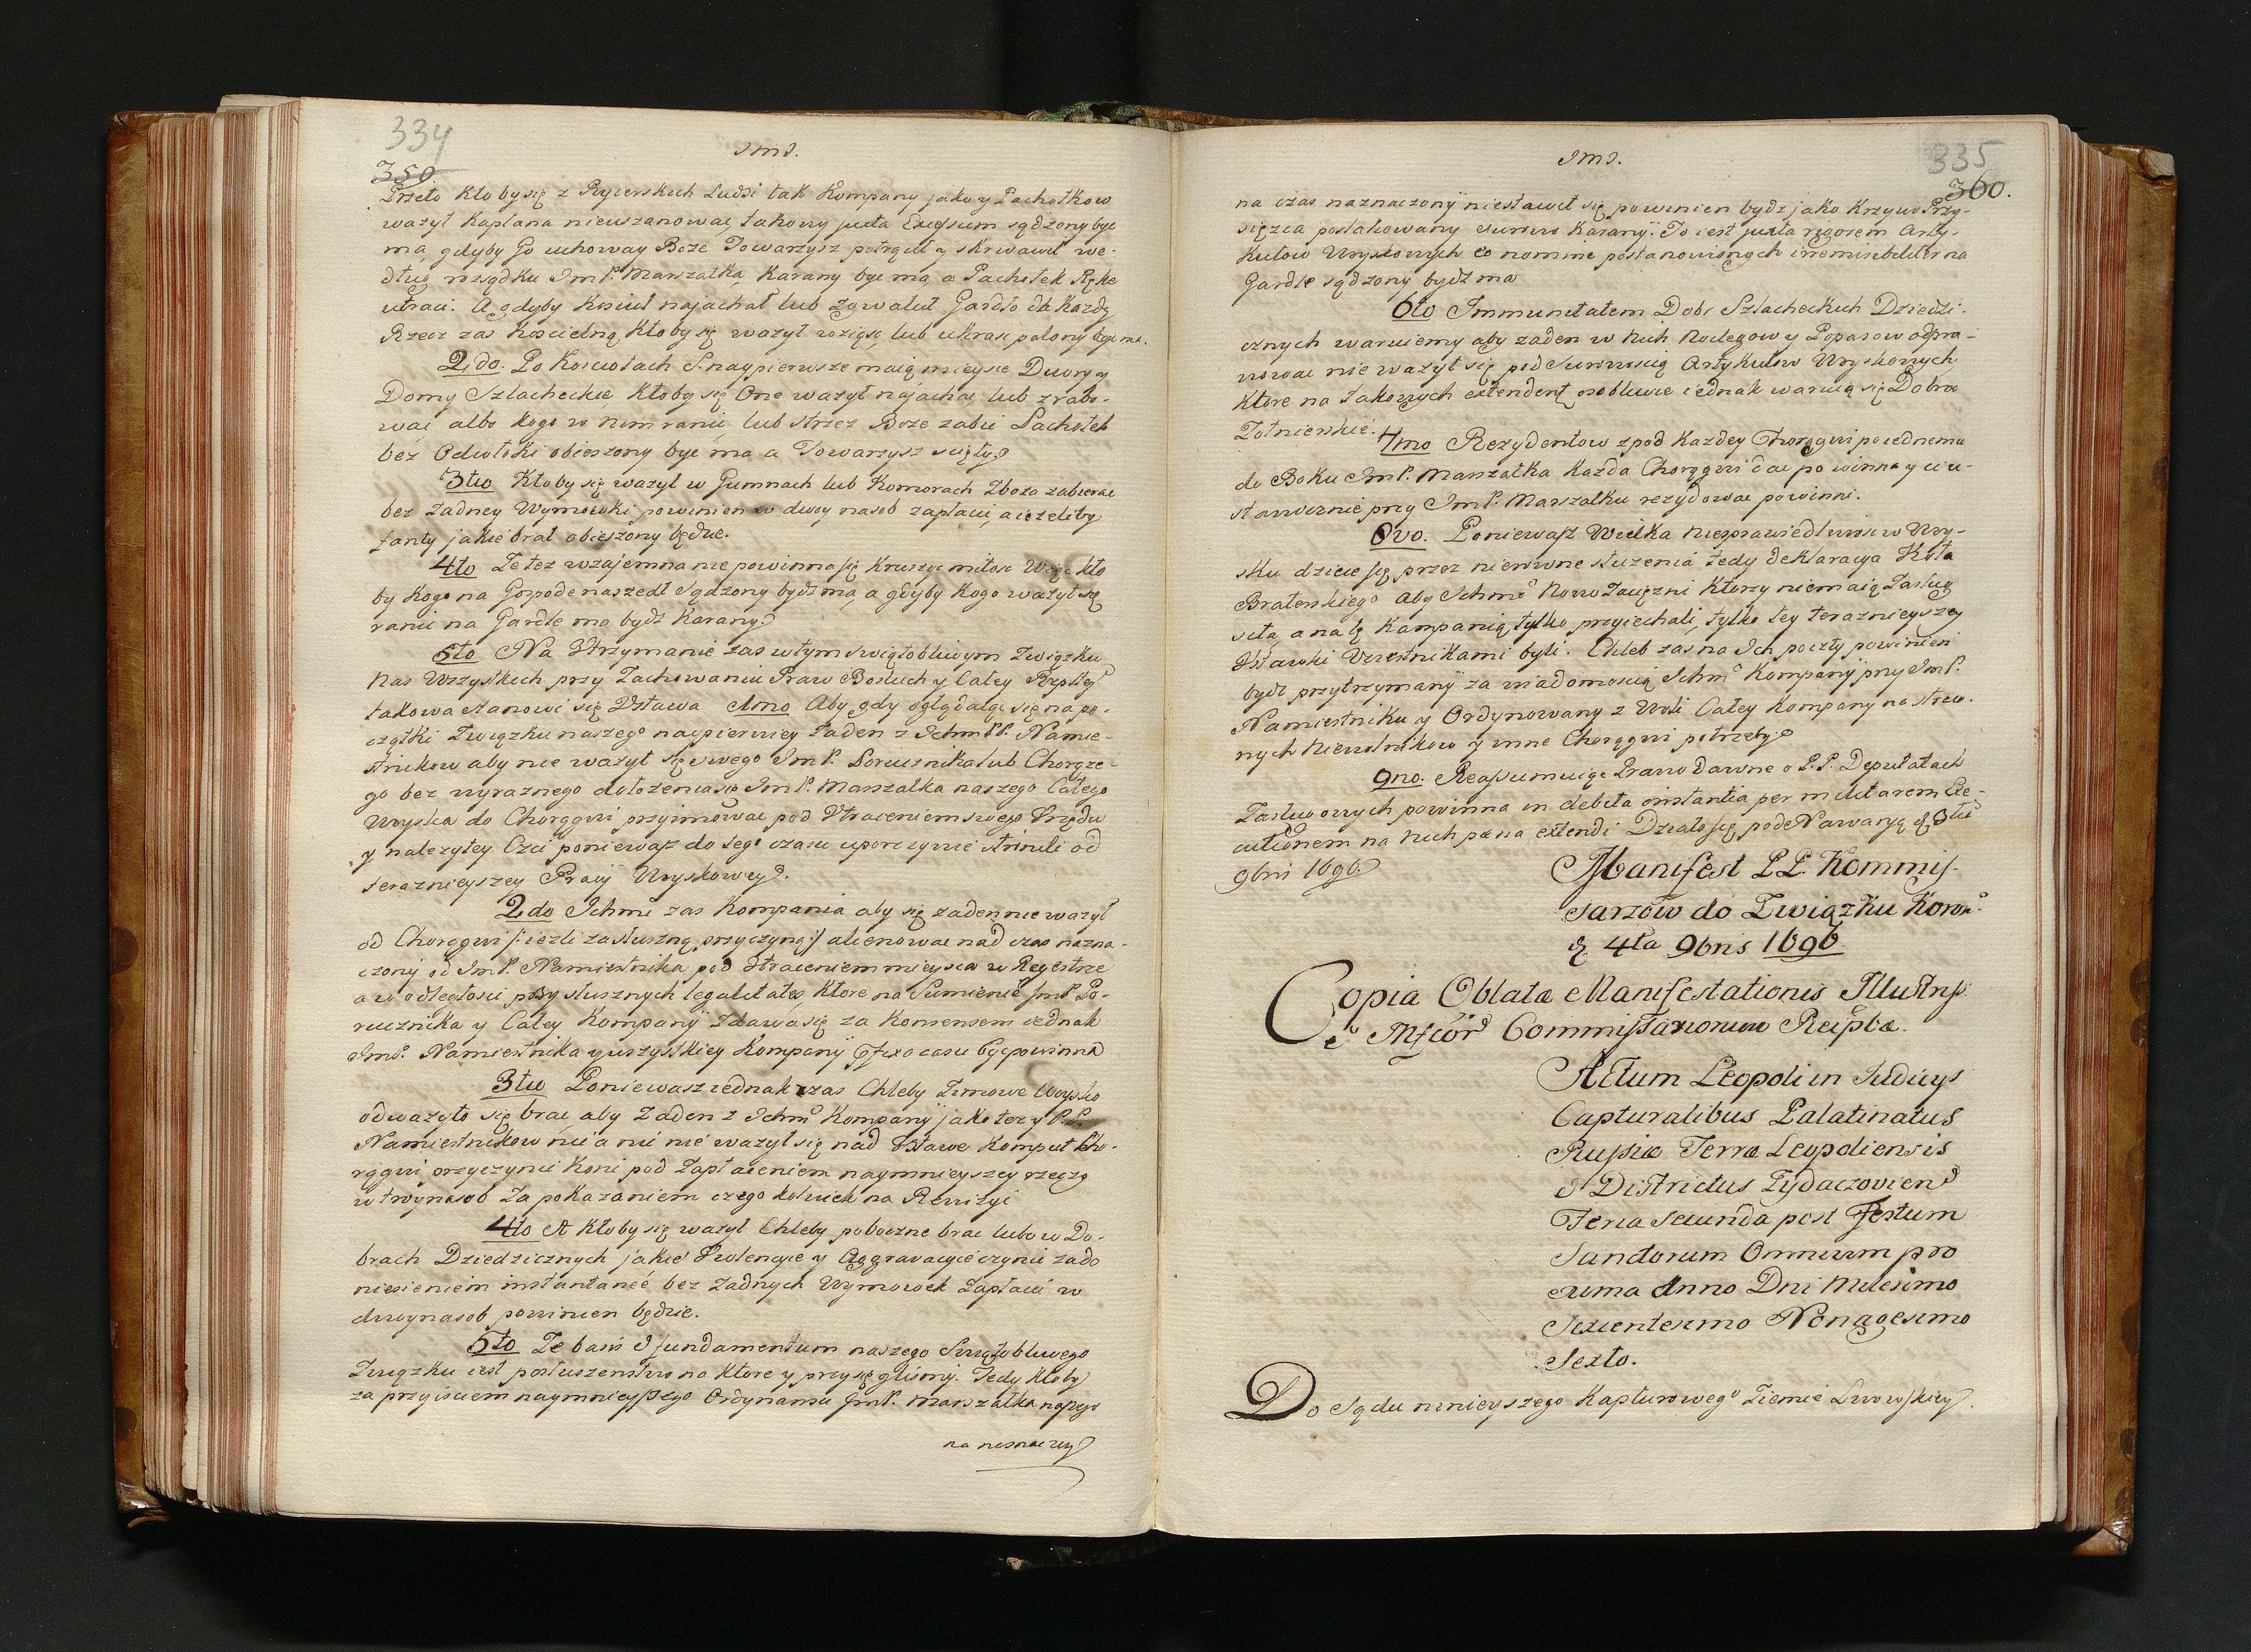 334
350
JMJ.
Przeto Kto by się z Rycerskich Ludzi tak Kompany jako y Pachołkow
ważył Kapłana nieuszanować, takowy juxta Excessum sądzony być
ma, gdyby Go uchoway Boże Towarzysz potrącił y skrwawił we-
dług rozsądku Jm P. Marszałka Karany być ma, a Pachołek Rękę
utraci. A gdyby Kościoł najachał lub zgwałcił Gardło da Każdy
Rzecz zaś Kościelną Ktoby się ważył wziąść lub ukraść palony być ma.
2do. Po Kościołach S. naypierwsze maią mieysce Dwory y
Domy Szlacheckie Ktoby się One ważył najachać lub zrabo-
wać albo kogo w nim ranić, lub strzez Boże zabić Pachołek
bez Odwłoki obieszony być ma a Towarzysz ścięty.
3tio Ktoby się ważył w Gumnach lub Komorach Zboża zabierać
bez Żadney Wymowki powinien w dwoy nasob zapłacić, a ieżeliby
fanty jakie brał obieszony będzie.
4to Że też wzajemna nie powinna się Kruszyć miłość Więc kto
by Kogo na Gospodę naszedł Sądzony bydź ma, a gdyby Kogo ważył się
ranić na Gardle ma bydź Karany.
5to Na Utrzymanie zaś w tym świątobliwym Związku
Nas Wszystkich przy Zachowaniu Praw Boskich y Całey Rzpltey
takowa stanowi się Ustawa 1mo Aby gdy oglądaląc się na po-
czątki Związku naszego naypierwiey Żaden z Ichm PP. Namie-
stnikow aby nie ważył się swego Jm P. Porucznika lub Chorąże-
go bez wyraznego dołożenia się Jm P. Marszałka naszego Całego
Woyska do Chorągwi przyimować pod Utraceniem swego Urzędu
y należytey Czci ponieważ do tego czasu uporczywie stronili od
terazniejszey Pracy Woyskowey.
2do Ichmć zaś Kompania aby się żaden nie ważył
od Chorągwi /: ieżli za słuszną przyczyną :/ alienować nad czas nazna-
czony od Jm P. Namiestnika pod Utraceniem mieysca w Regestrze
a w odległości przy słusznych legalitates, Które na Sumienie Jm P. Po-
rucznika y Całey Kompany zdawa się za Konsensem iednak
Jm P. Namiestnika y wszystkiey Kompany ex casu być powinna
3tio Ponieważ iednak czas Chleby Zimowe Woysko
odważyło się brać, aby Żaden z Ichm Kompany jako też y P.P.
Namiestnikow nic a nic nie ważył się nad Ustawę Komput Cho-
rągwi przyczynić Koni pod Zapłaceniem naymnieyszey rzeczy
w troynasob za pokazaniem czego kolwiek na Rewizyi
4to A Ktoby się ważył Chleby poboczne brać lubo w Do-
brach Dziedzicznych jakie Violencye y Aggrawacyie czynić za do
niesieniem instantaneè bez żadnych Wymowek zapłacić w
dwoynasob powinien będzie.
5to Że basis & fundamentum naszego Swiątobliwego
Związku iest posłuszeństwo na Ktore y przysięgliśmy. Tedy Ktoby
za przyściem naymnieyszego Ordynansu Jm P. Marszałka naszego
na naznaczony
335
360.
JMJ.
na czas naznaczony niestawił się powinien bydz jako Krzywo Przy-
sięzca postakowany surowo Karany. To iest juxta rigorem Arty-
kułow Woyskowych eo nomine postanowionych irremisibiliter na
Gardle sądzony bydz ma
6to Immunitatem Dobr Szlacheckich Dziedzi-
cznych waruiemy aby żaden w Nich Noclegow y Popasow odpra-
wować nie ważył się pod surowością Artykułow Woyskowych
Ktore na takowych extendent, osobliwie iednak waruią się Dobra
Żołnierskie.
7mo Rezydentow z pod Każdey Chorągwi po iednemu
do Boku Jm P. Marszałka Każda Chorągwi dać powinna y ciu-
stawicznie przy Jm P. Marszałku rezydować powinni.
8vo. Ponieważ Wielka Niesprawiedliwość w Woy-
sku dzieie się przez nierowne służenia tedy deklaracya Koła
Braterskiego Aby Ichmć Nowo Zaciężni Ktorzy nie maią Zasług
siła, a na tę Kampanią tylko przyiechali, tylko tey terazniejszey
Ustawki Uczestnikami byli. Chleb zaś na Ich poczty powinien
bydz przytrzymany za wiadomością Ichm Kompany przy Jm P.
Namiestniku y Ordynowany z Woli Całey Kompany na straw-
nych Niewolnikow y inne Chorągwi potrzeby.
9no. Reassumuiąc Prawo dawne o P.P. Deputatach
Zasługowych powinna in debita instantia per militarem Exe-
cutionem na Nich pæna extendi Działo się pod Nawaryą d. 3tia
9bris 1696.
Manifest PP. Kommis-
sarzow do Związku Koron.
d. 4ta 9bris 1696
Copia Oblatæ Manifestationis Illustriss.
& Mfcor Commissariorum Reipbcæ.
Actum Leopoli in Judicys
Capturalibus Palatinatus
Russiæ Terræ Leopoliensis
& Districtus Zydaczoviens
Feria Secunda post Festum
Sanctorum Omnium pro
xima Anno Dni Milesimo
Sexcentesimo Nonagesimo
Sexto.
Do Sądu ninieyszego Kapturowego Ziemie Lwowskiey